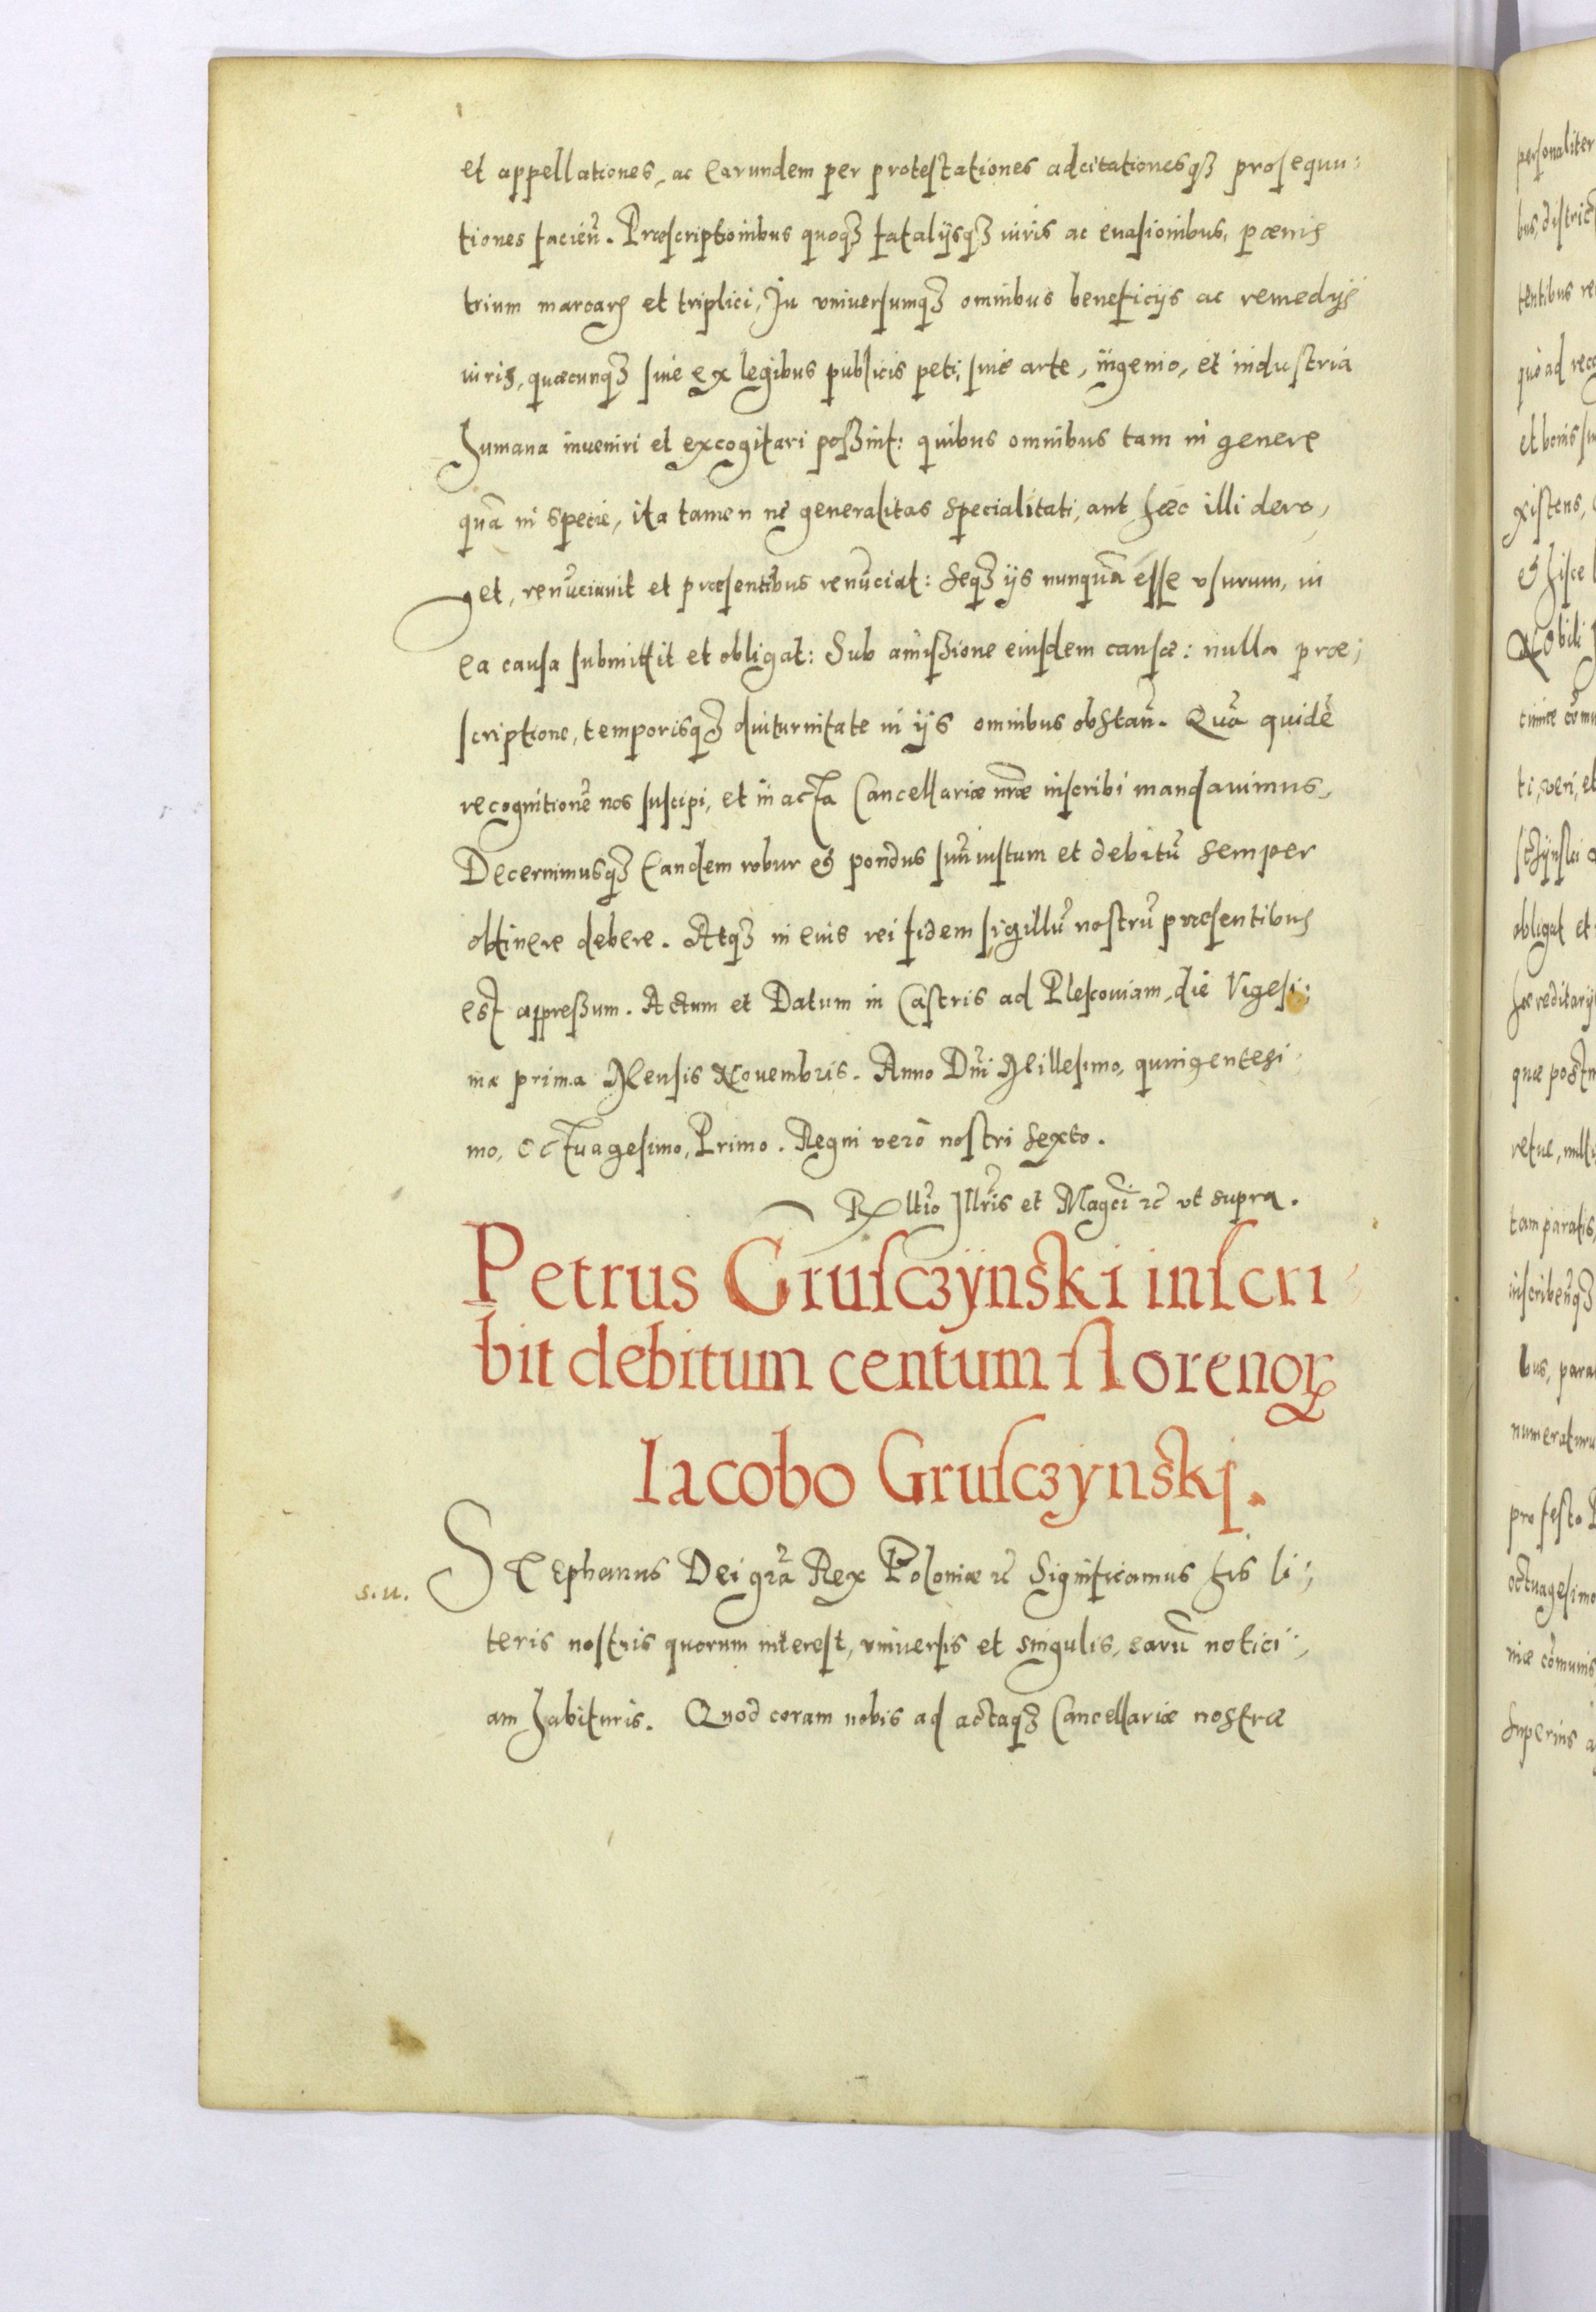 et appellationes, ac earundem per protestationes adcitationesq3 prosequu:
tiones facien̄. Præscriptionibus quoq3 fatalijsq3 iuris ac euasionibus, pœnis
trium marcarȝ et triplici, In vniuersumq3 omnibus beneficijs ac remedijs
iuris, quæcunq3 siue ex legibus publicis peti, siue arte, ingenio, et industria
humana inueniri et excogitari poßint: quibus omnibus tam in genere
quā in specie, ita tamen ne generalitas specialitati, aut hæc illi dero,
get, renūciauit et præsentibus renūciat: Seq3 ijs nunquā esse vsurum, in
ea causa submittit et obligat: Sub amißione eiusdem causæ: nulla præ;
scriptione, temporisq3 diuturnitate in ijs omnibus obstan̄. Quā quidē
recognitionē nos suscipi, et in acta Cancellariæ nr̄æ inscribi mandauimus,
Decernimusq3 Eandem robur & pondus suū iustum et debitū semper
obtinere debere. Atq3 in euis rei fidem sigillū nostrū præsentibus
est appreßum. Actum et Datum in Castris ad Plescouiam, die Vigesi;
ma prima Mensis Nouembris. Anno Dn̄i Millesimo, quingentesi
mo, Octuagesimo, Primo. Regni verò nostri sexto.
Rltīo Illr̄is et Magc̄i ꝛc vt supra.
Petrus Gruſczÿnski inſcri
bit debitum centum florenoꝝ
Iacobo Gruſczynskj.
s.u.
Stephanus Dei grā Rex Poloniæ ꝛc Significamus his li;
teris nostris quorum interest, vniuersis et singulis, earū notici;
am habituris. Quod coram nobis ad actaq3 Cancellariæ nostræ
personaliter
tentibus re
quo ad rec
xistens,
& hisce
Nobili
obligat et
hæreditarijs
quæ post
tam paratis,
bus, para
numeraturu
pro festo
octuagesimo
niæ cōmunis
superius a